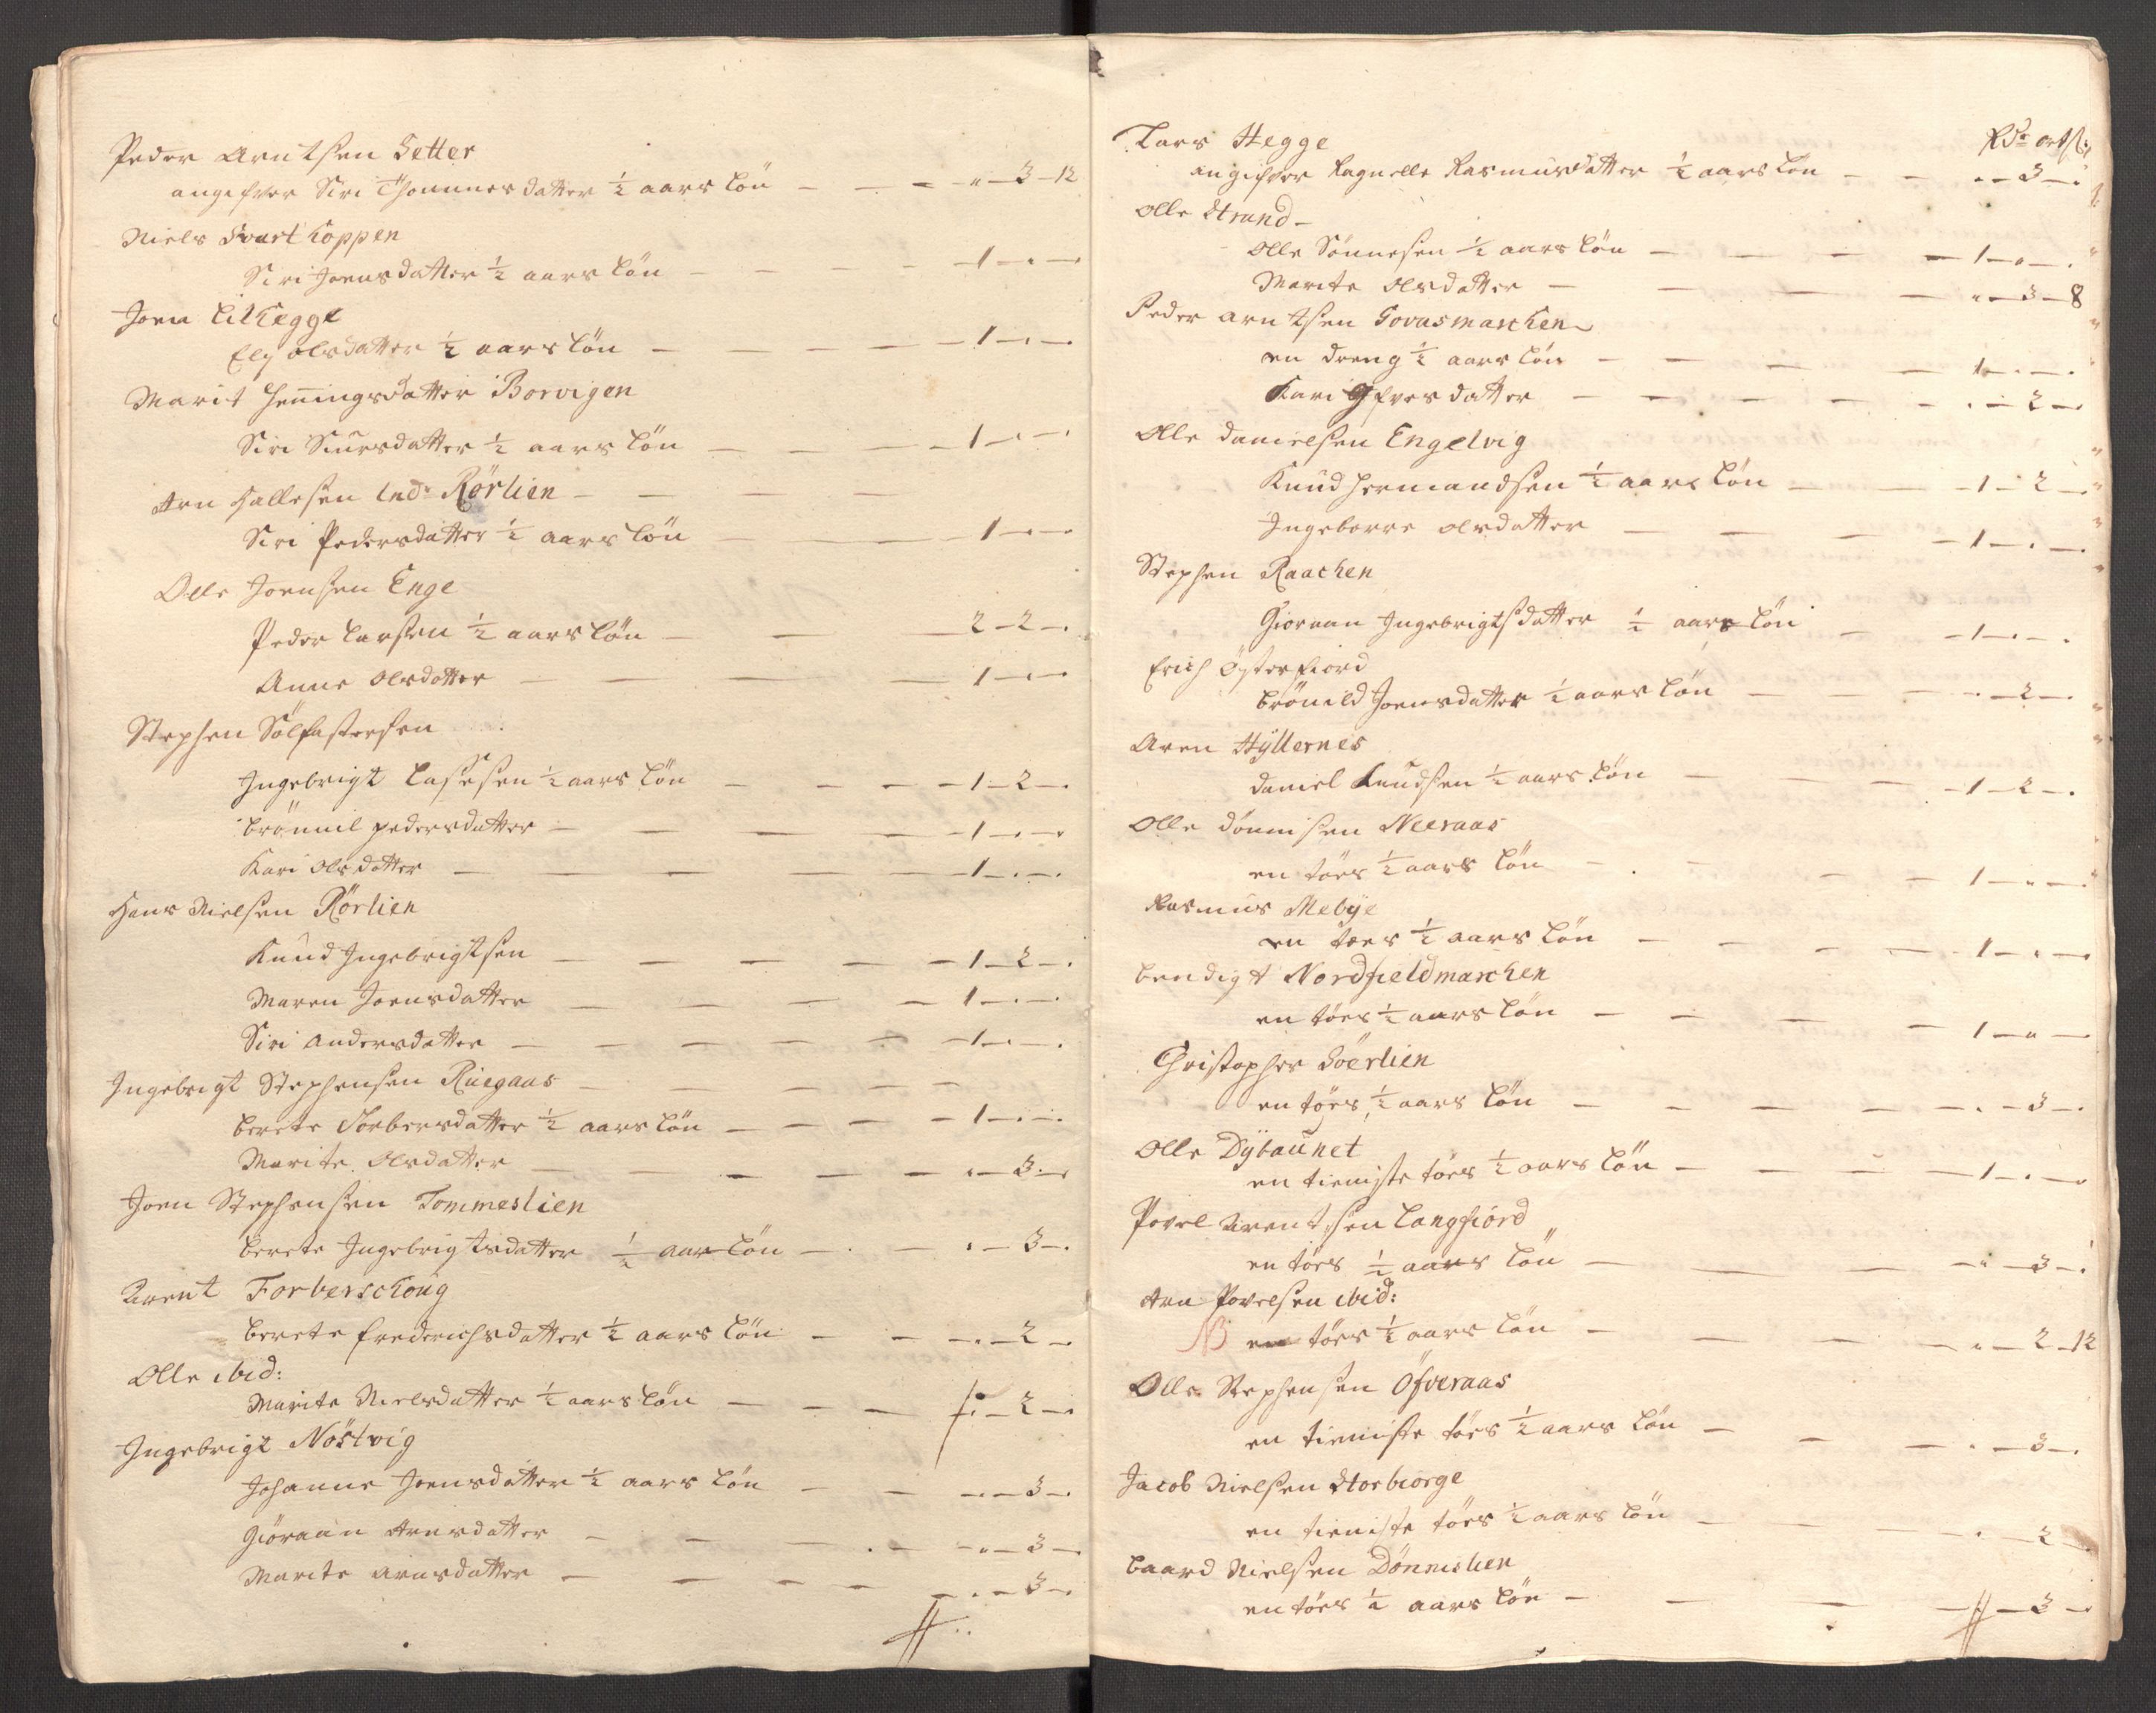 Peder Arntsen Setter
angifver Siri Thommes datter ½ aars Løn — — — " — 3 — 12
Niels Svart Koppen
Siri Joens datter ½ aars Løn — — — — 1 — " —
Joen Lilhegge
Ely olsdatter ½ aars Løn — — — — 1 — " —
Marit Henningsdatter Borvigen
Siri Siursdatter ½ aars Løn — — — 1 — " —
Arn Hallesen Ind: Rörlien — — — —
Siri Pedersdatter ½ aars Løn — — — 1 — " —
Olle Joensen Enge
Peder Larsen ½ aars Løn — — — 2 — 2 — "
Anne Olsdatter — — — — 1 — " —
Stephen Sølfastersen
Ingebrigt Lassesen ½ aars Løn — — — 1 — 2 — "
Brönnil pedersdatter — — — — 1 — " —
Kari Olsdatter — — — — — 1 — " —
Hans Nielsen Rörlien
Knud Ingebrigtsen — — — — 1 — 2 — "
Maren Joensdatter — — — — 1 — " —
Siri Andersdatter — — — — — 1 — " —
Ingebrigt Stephensen Ruegaas — — — —
berete Torbersdatter ½ aars Løn — — — 1 — " —
Marite Olsdatter — — — — — " — 3 —
Joen Stephensen Tommeslien
berete Ingebrigtsdatter ½ aar Løn — — " — 3 — "
Arent Forberschoug
berete Frederichsdatter ½ aars Løn — — " — 2 —
Olle ibid:
Marite Nielsdatter ½ aars Løn — — — " — 2 —
Ingebrigt Nöstvig
Johanne Joensdatter ½ aars Løn — — " — 3 —
Giöraan Arnsdatter — — — — " — 3 —
Marite Arnsdatter — — — — " — 3 —
Lars Hegge
Rdr ort ß:
angifver Ragnelle Rasmusdatter ½ aars Løn — — " — 3 — "
Olle Strand —
Olle Sönnesen ½ aars Løn — — — — 1 — " — "
Marite Olsdatter — — — — " — 3 — 8
Peder Arntsen Govasmarchen
en dreng ½ aars Løn — — — — 1 — " — "
Kari Ifversdatter — — — — — " — 2 —
Olle Danielsen Engelvig
Knud Hermandsen ½ aars Løn — — 1 — 2 —
Ingeborre olsdatter — — — — 1 — " —
Stephen Raachen
Gioraan Ingebrigtsdatter ½ aars Løn — — 1 — " — "
Erich Österfiord
brönild Joensdatter ½ aars Løn — — — " — 2 — "
Aren Hyllernes
Daniel Knudsen ½ aars Løn — — — 1 — 2 — "
Olle Dönnisen Neeraas
en töes ½ aars Løn — — — — 1 — " —
Rasmus Mebye
en toes ½ aars Løn — — — — 1 — " —
bendigt Nordfieldmarchen
en töes ½ aars Løn — — — — 1 — " —
Christopher Soerlien
en töes ½ aars Løn — — — — — " — 3 — "
Olle Dybaunet
en tieniste töes ½ aars Løn — — — — 1 — " —
Povel Arentsen Langfiord
en töes ½ aars Løn — — — " — 3 — "
Arn Povelsen ibid:
NB en töes ½ aars Løn — — — — " — 2 — 12
Olle Stephensen Öfveraas
en tieniste töes ½ aars Løn — — — " — 3 — "
Jacob Nielsen Storbiorge
en tieniste töes ½ aars Løn — — — " — 2 — "
baard Nielsen Dönneslien
en töes ½ aars Løn — — — — 3 —